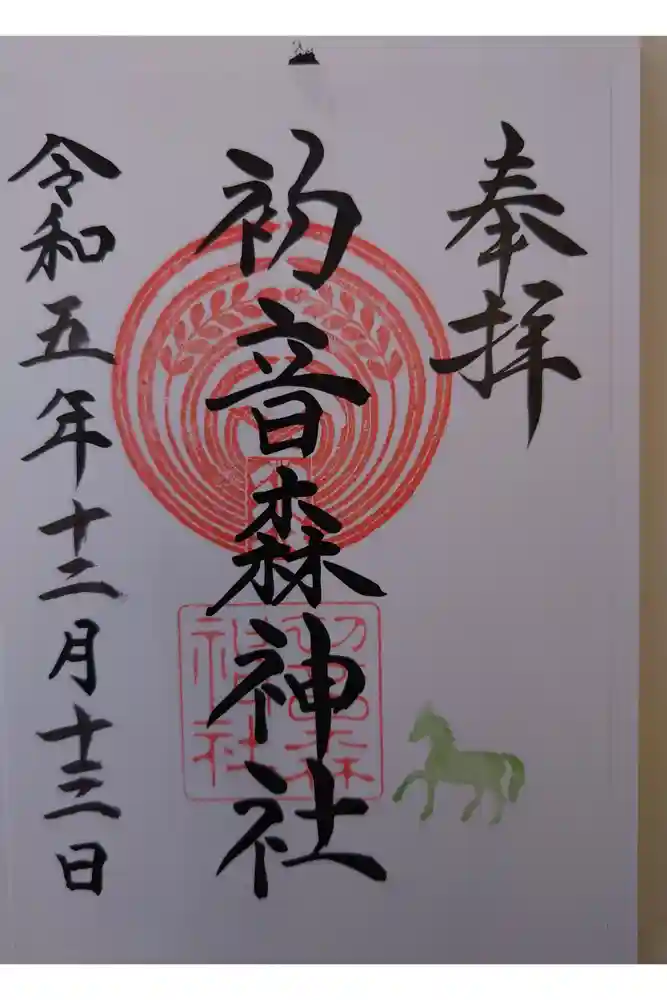 奉拝
初音森神社
初音森神社
令和五年十二月十三日